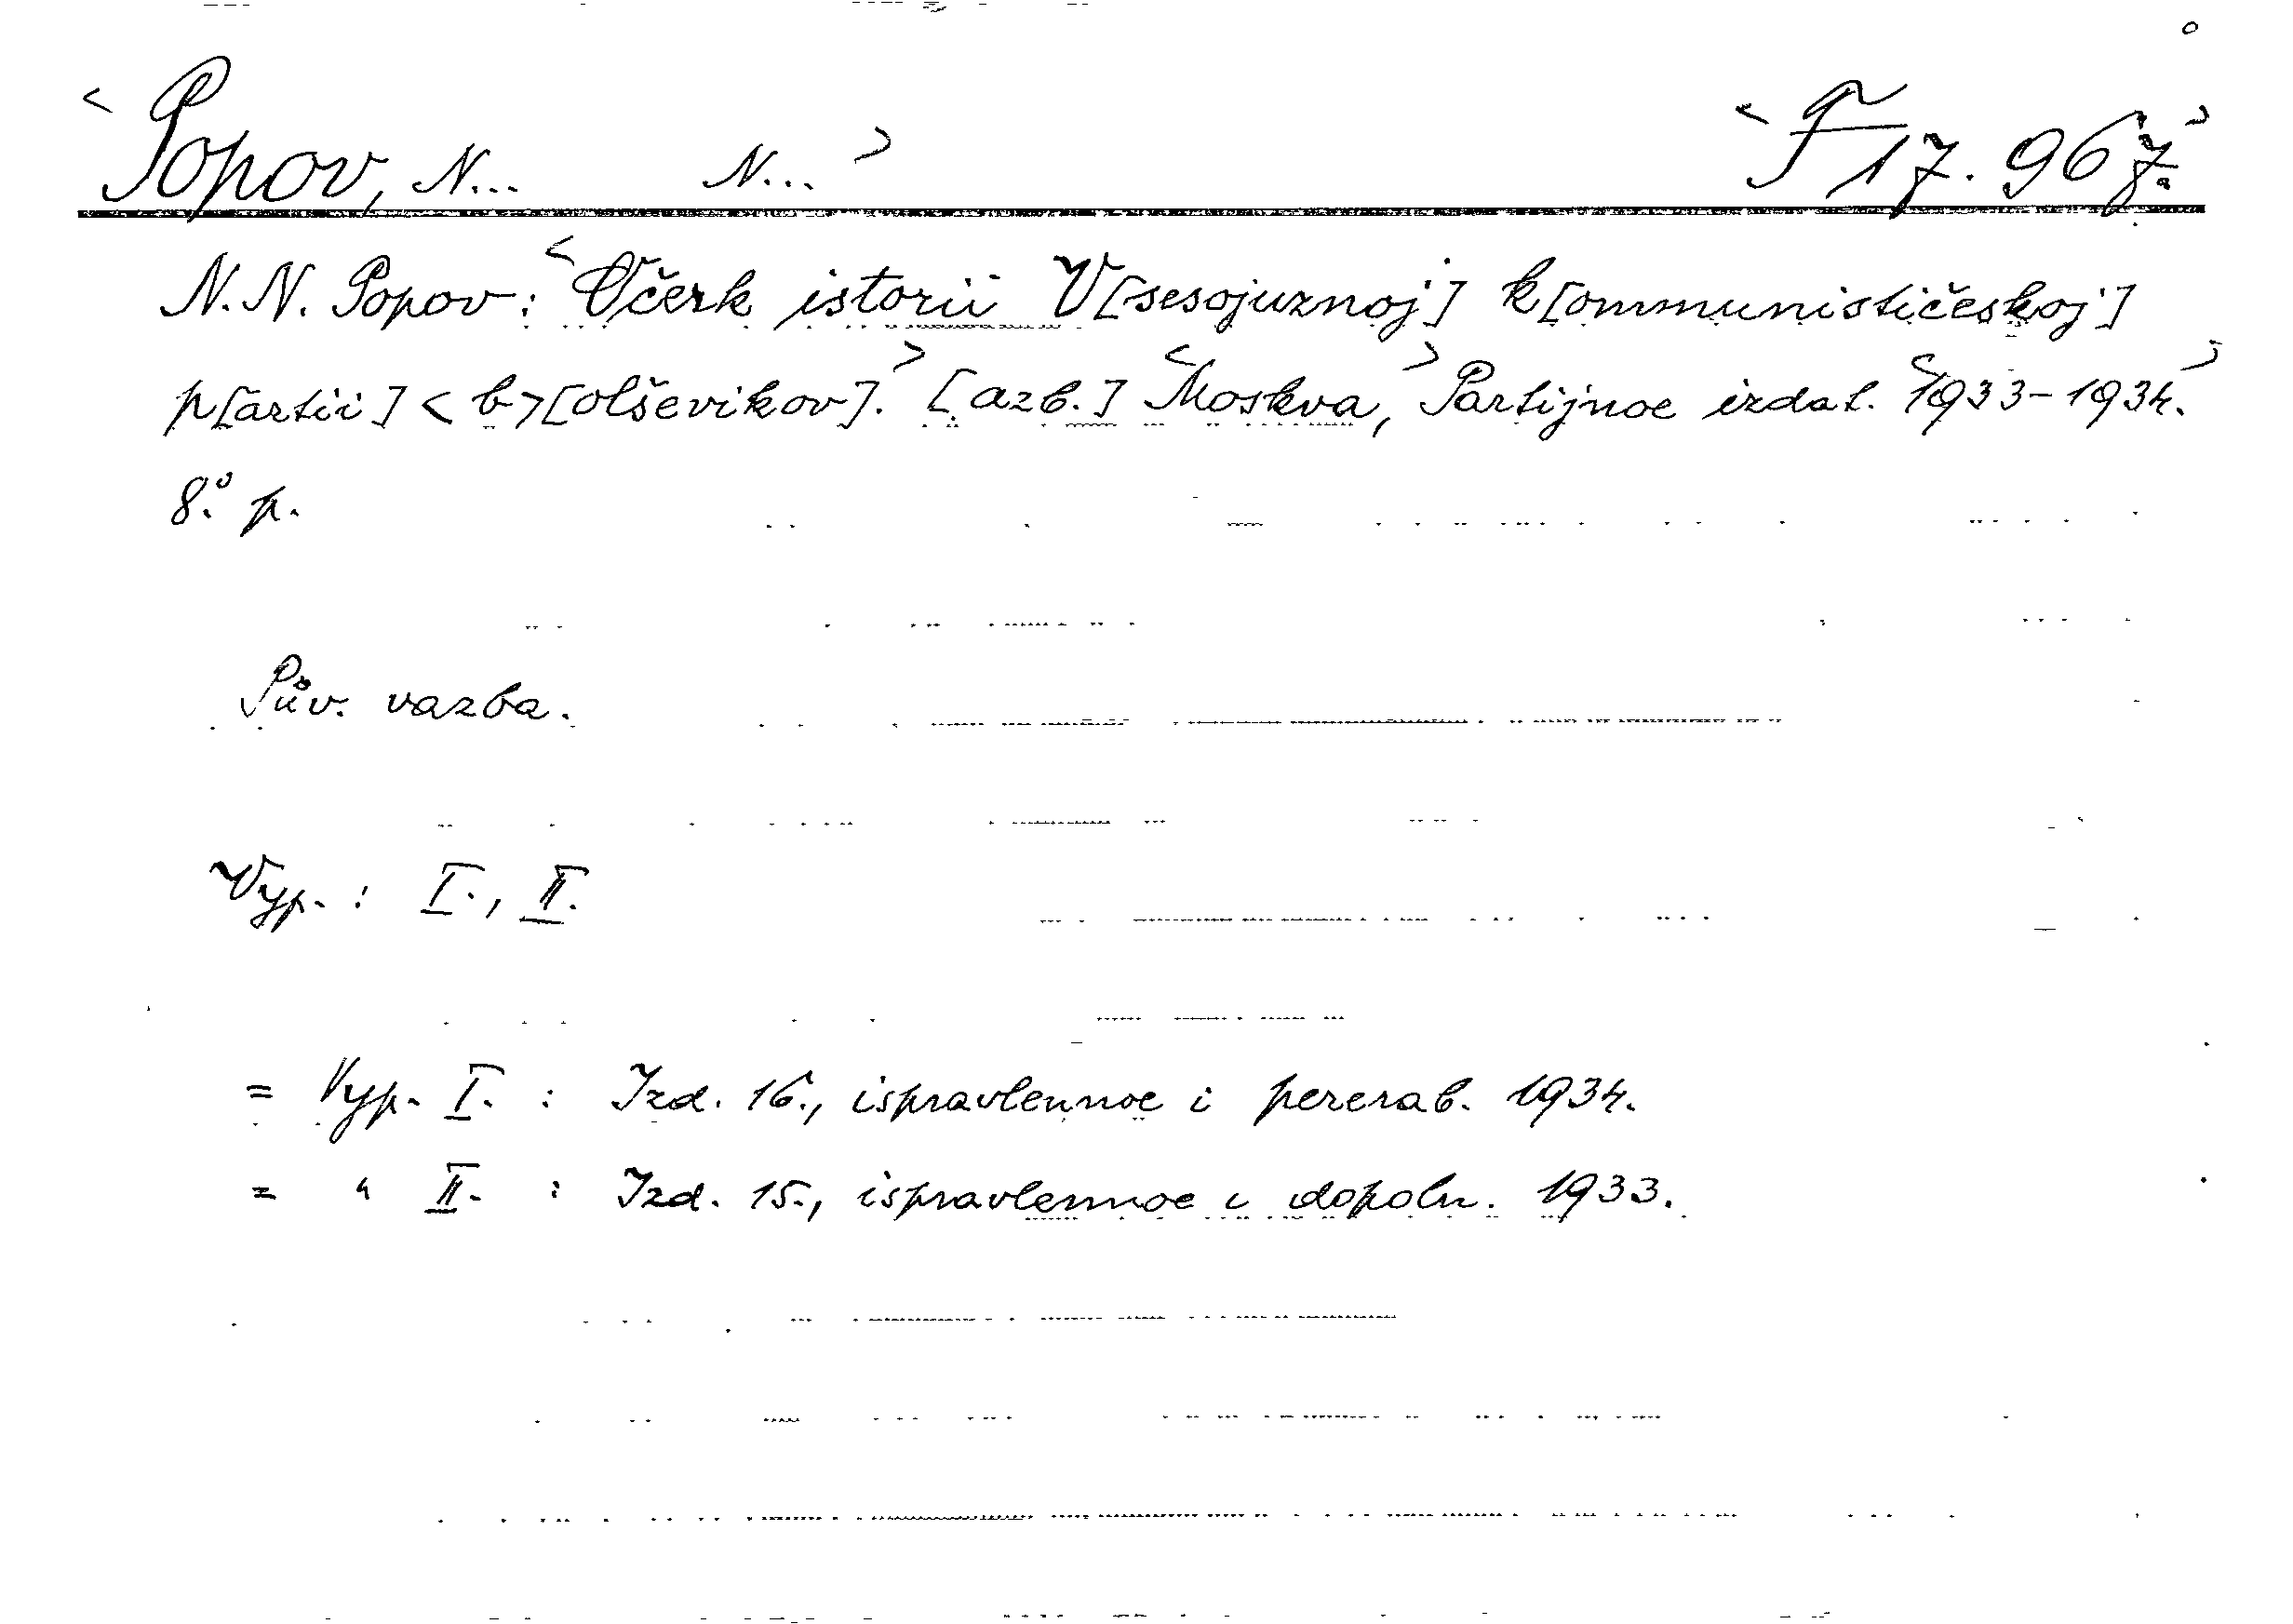 <Popov, N... N...> <F 17.967.>
N.N. Popov: <Očerk istorii V[sesojuznoj] k[ommunističeskoj]
p[artii] <b>[olševikov].> [azb.] <Moskva,> Partijnoe izdat. <1933-1934.>
8.° p.
Pův. vazba.
Vyp.: I., II.
= Vyp. I. : Izd. 16., ispravlennoe i pererab. 1934.
= " II. : Izd. 15., ispravlennoe i dopoln. 1933.